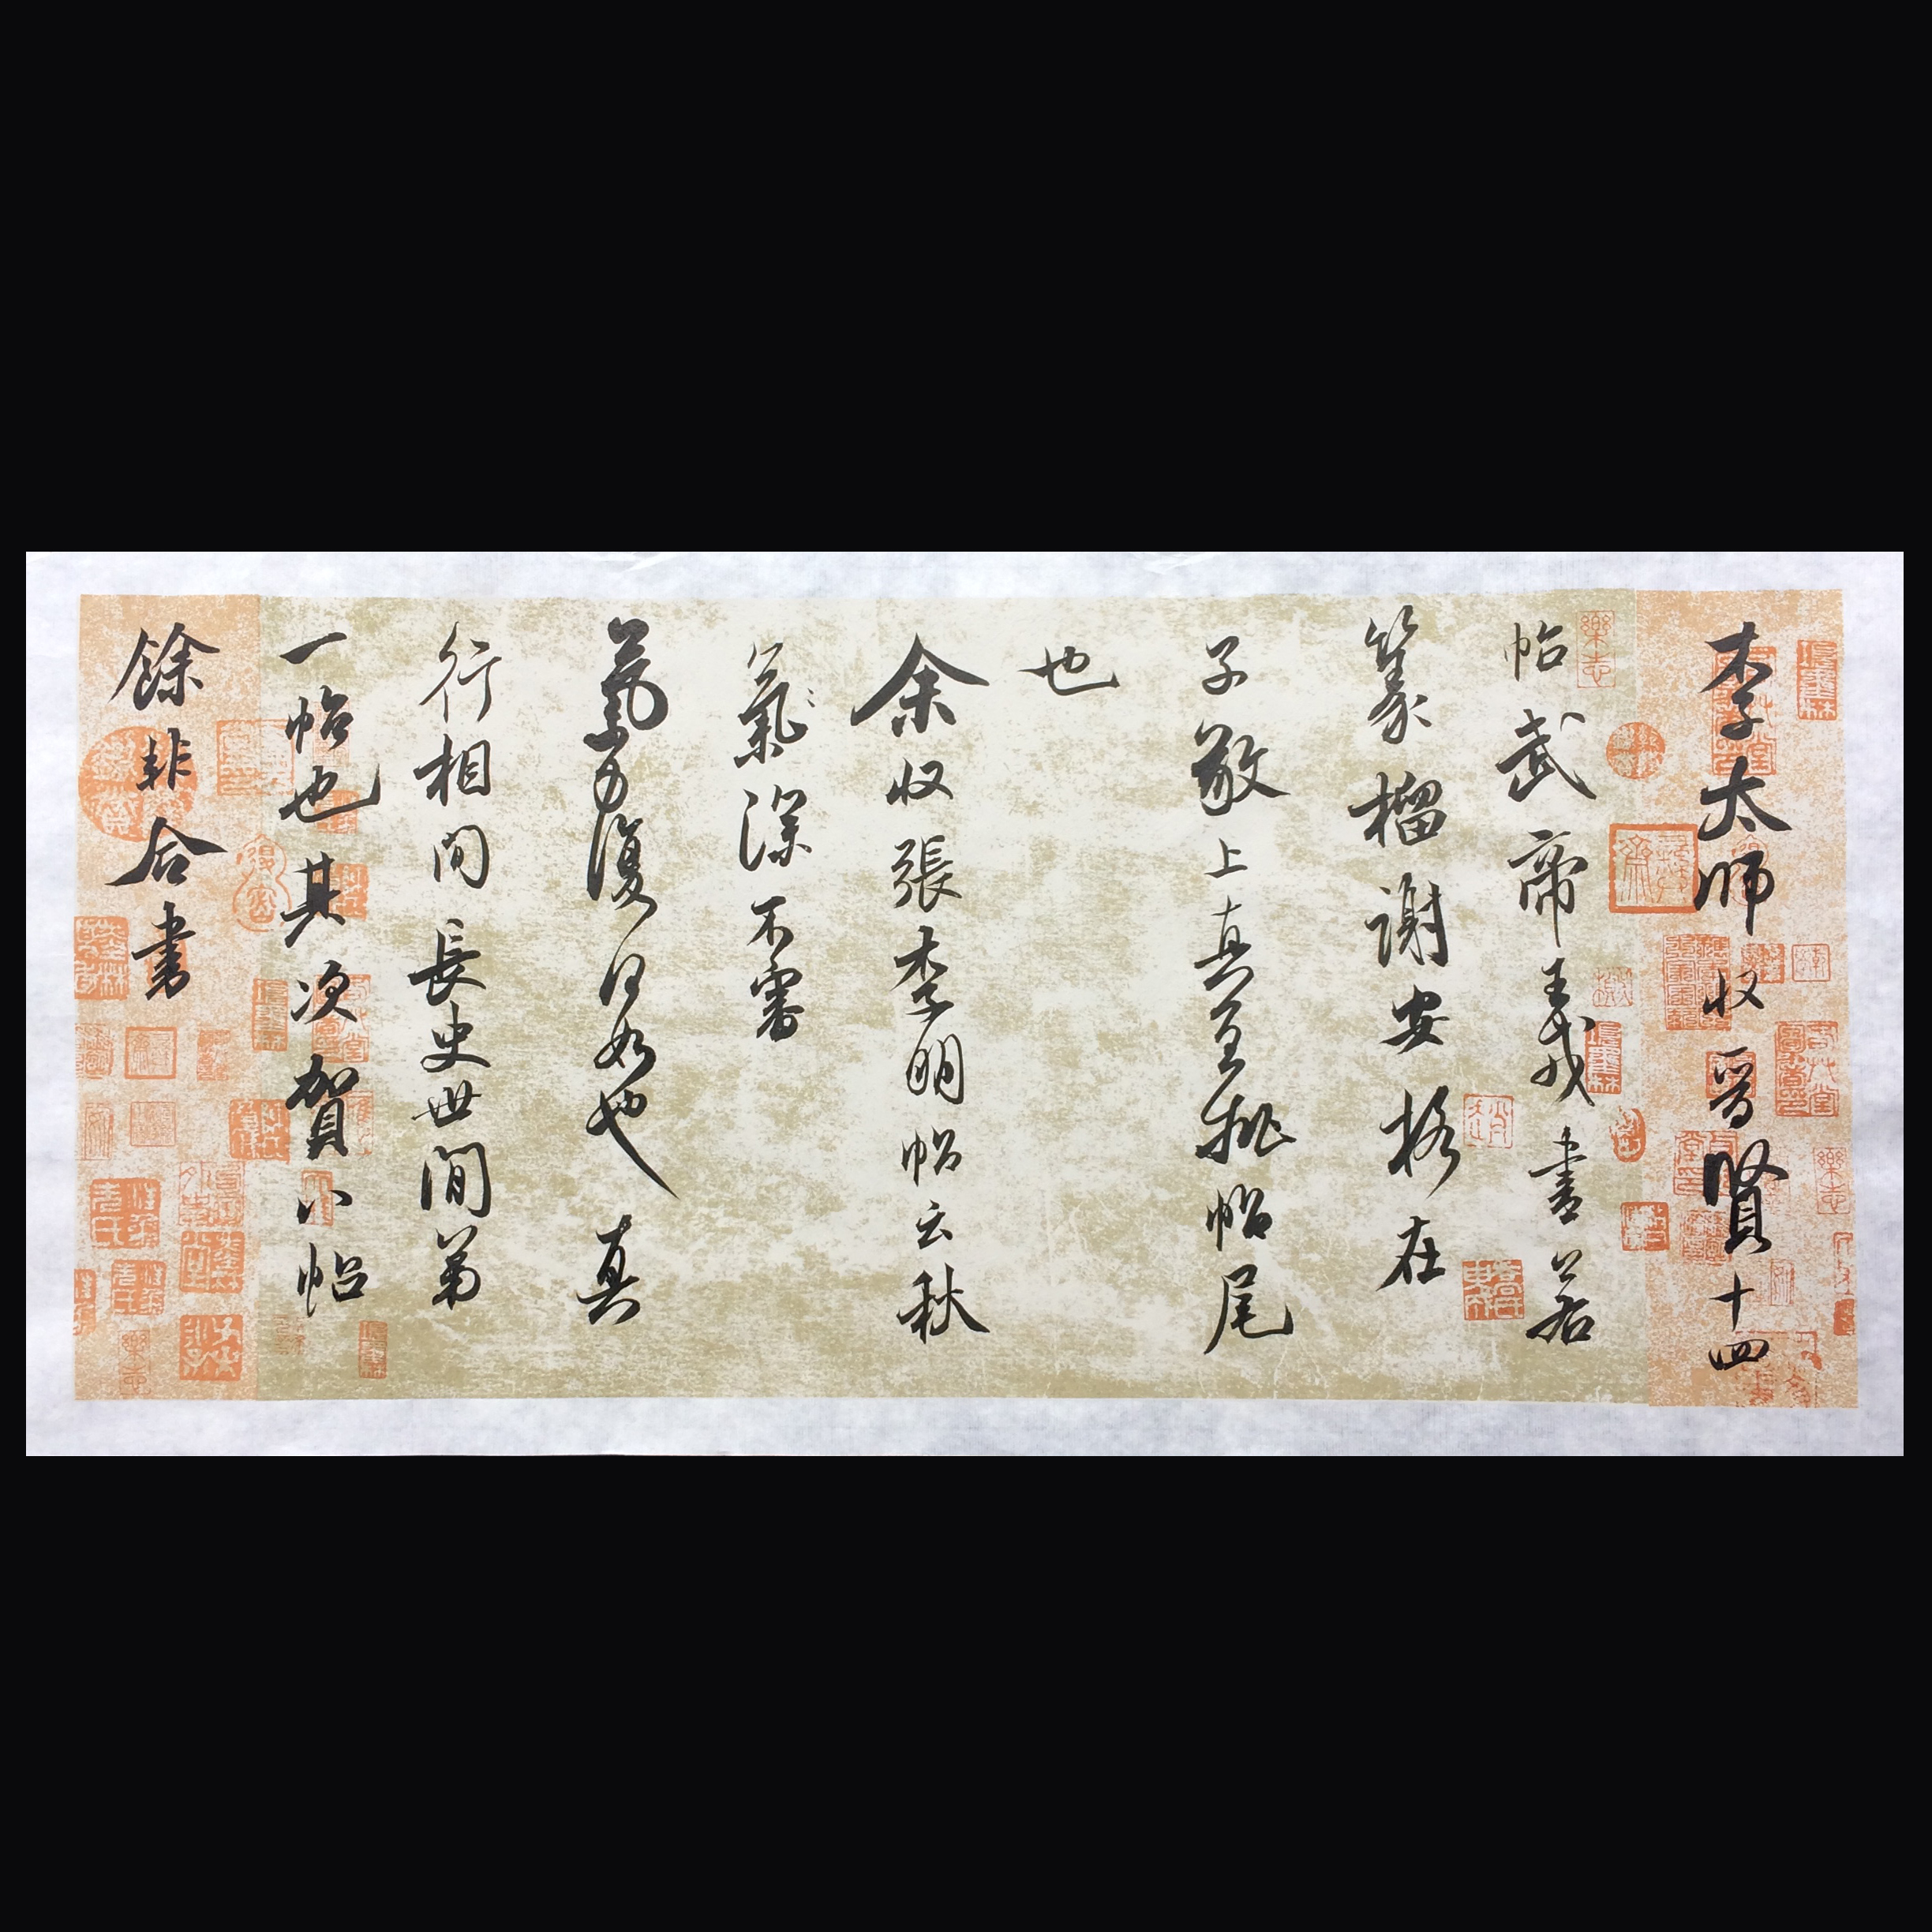 李太師收晉賢十四
帖武帝王戎書若
篆籀謝安格在
子敬上真宜批帖尾
也
余收張季明帖云秋
氣深不審
氣力復何如也真
行相間長史世間第
一帖也其次賀八帖
餘非合書